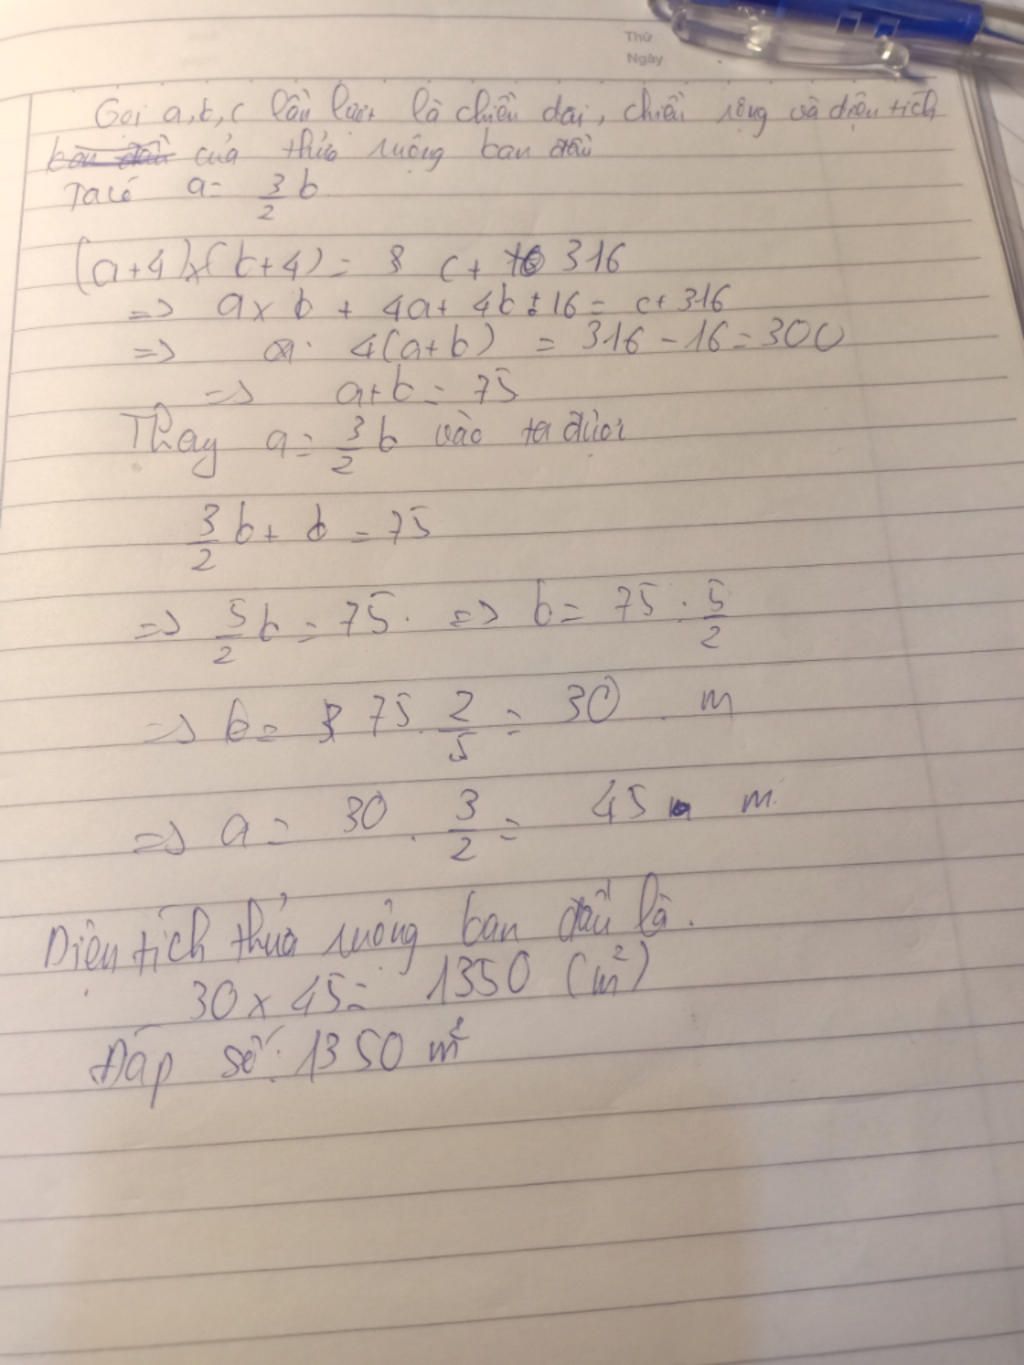 Thứ
Ngày
Gọi a, b, c lần lượt là chiều dài, chiều rộng và diện tích
của thửa ruộng ban đầu
Ta có a = 3/2 b
(a+4)×(b+4) = c + 316
=> a × b + 4a + 4b + 16 = c + 316
=> 4(a+b) = 316 - 16 = 300
=> a+b = 75
Thay a = 3/2 b vào ta được
3/2 b + b = 75
=> 5/2 b = 75. => b = 75 : 5/2
=> b = 75 . 2/5 = 30 m
=> a = 30 . 3/2 = 45 m
Diện tích thửa ruộng ban đầu là.
30 × 45 = 1350 (m²)
Đáp số: 1350 m²